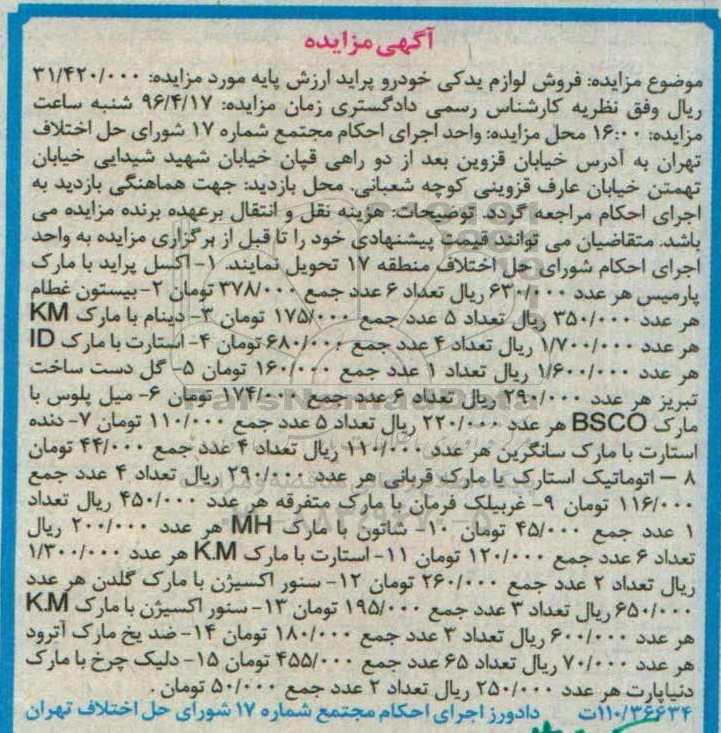 آگهی مزایده
موضوع مزایده: فروش لوازم یدکی خودرو پراید ارزش پایه مورد مزایده: ۳۱/۴۲۰/۰۰۰
ریال وفق نظریه کارشناس رسمی دادگستری زمان مزایده: ۹۶/۴/۱۷ شنبه ساعت
مزایده: ۱۶:۰۰ محل مزایده: واحد اجرای احکام مجتمع شماره ۱۷ شورای حل اختلاف
تهران به آدرس خیابان قزوین بعد از دو راهی قپان خیابان شهید شیدایی خیابان
تهمتن خیابان عارف قزوینی کوچه شعبانی. محل بازدید: جهت هماهنگی بازدید به
اجرای احکام مراجعه گردد. توضیحات: هزینه نقل و انتقال برعهده برنده مزایده می
باشد. متقاضیان می توانند قیمت پیشنهادی خود را تا قبل از برگزاری مزایده به واحد
اجرای احکام شورای حل اختلاف منطقه ۱۷ تحویل نمایند. ۱- اکسل پراید با مارک
پارمیس هر عدد ۶۳۰/۰۰۰ ریال تعداد ۶ عدد جمع ۳۷۸/۰۰۰ تومان ۲- بیستون غطام
هر عدد ۳۵۰/۰۰۰ ریال تعداد ۵ عدد جمع ۱۷۵/۰۰۰ تومان ۳- دینام با مارک KM
هر عدد ۱/۷۰۰/۰۰۰ ریال تعداد ۴ عدد جمع ۶۸۰/۰۰۰ تومان ۴- استارت با مارک ID
هر عدد ۱/۶۰۰/۰۰۰ ریال تعداد ۱ عدد جمع ۱۶۰/۰۰۰ تومان ۵- گل دست ساخت
تبریز هر عدد ۲۹۰/۰۰۰ ریال تعداد ۶ عدد جمع ۱۷۴/۰۰۰ تومان ۶- میل پلوس با
مارک BSCO هر عدد ۲۲۰/۰۰۰ ریال تعداد ۵ عدد جمع ۱۱۰/۰۰۰ تومان ۷- دنده
استارت با مارک سانگرین هر عدد ۱۱۰/۰۰۰ ریال تعداد ۴ عدد جمع ۴۴/۰۰۰ تومان
۸ – اتوماتیک استارک یا مارک قربانی هر عدد ۲۹۰/۰۰۰ ریال تعداد ۴ عدد جمع
۱۱۶/۰۰۰ تومان ۹- غربیلک فرمان با مارک متفرقه هر عدد ۴۵۰/۰۰۰ ریال تعداد
۱ عدد جمع ۴۵/۰۰۰ تومان ۱۰- شاتون با مارک MH هر عدد ۲۰۰/۰۰۰ ریال
تعداد ۶ عدد جمع ۱۲۰/۰۰۰ تومان ۱۱- استارت با مارک K.M هر عدد ۱/۳۰۰/۰۰۰
ریال تعداد ۲ عدد جمع ۲۶۰/۰۰۰ تومان ۱۲- سنور اکسیژن با مارک گلدن هر عدد
۶۵۰/۰۰۰ ریال تعداد ۳ عدد جمع ۱۹۵/۰۰۰ تومان ۱۳- سنور اکسیژن با مارک K.M
هر عدد ۶۰۰/۰۰۰ ریال تعداد ۳ عدد جمع ۱۸۰/۰۰۰ تومان ۱۴- ضد یخ مارک آترود
هر عدد ۷۰/۰۰۰ ریال تعداد ۶۵ عدد جمع ۴۵۵/۰۰۰ تومان ۱۵- دلیک چرخ با مارک
دنیاپارت هر عدد ۲۵۰/۰۰۰ ریال تعداد ۲ عدد جمع ۵۰/۰۰۰ تومان.
۱۱۰/۳۶۶۳۴ت دادورز اجرای احکام مجتمع شماره ۱۷ شورای حل اختلاف تهران
ParsNamadData